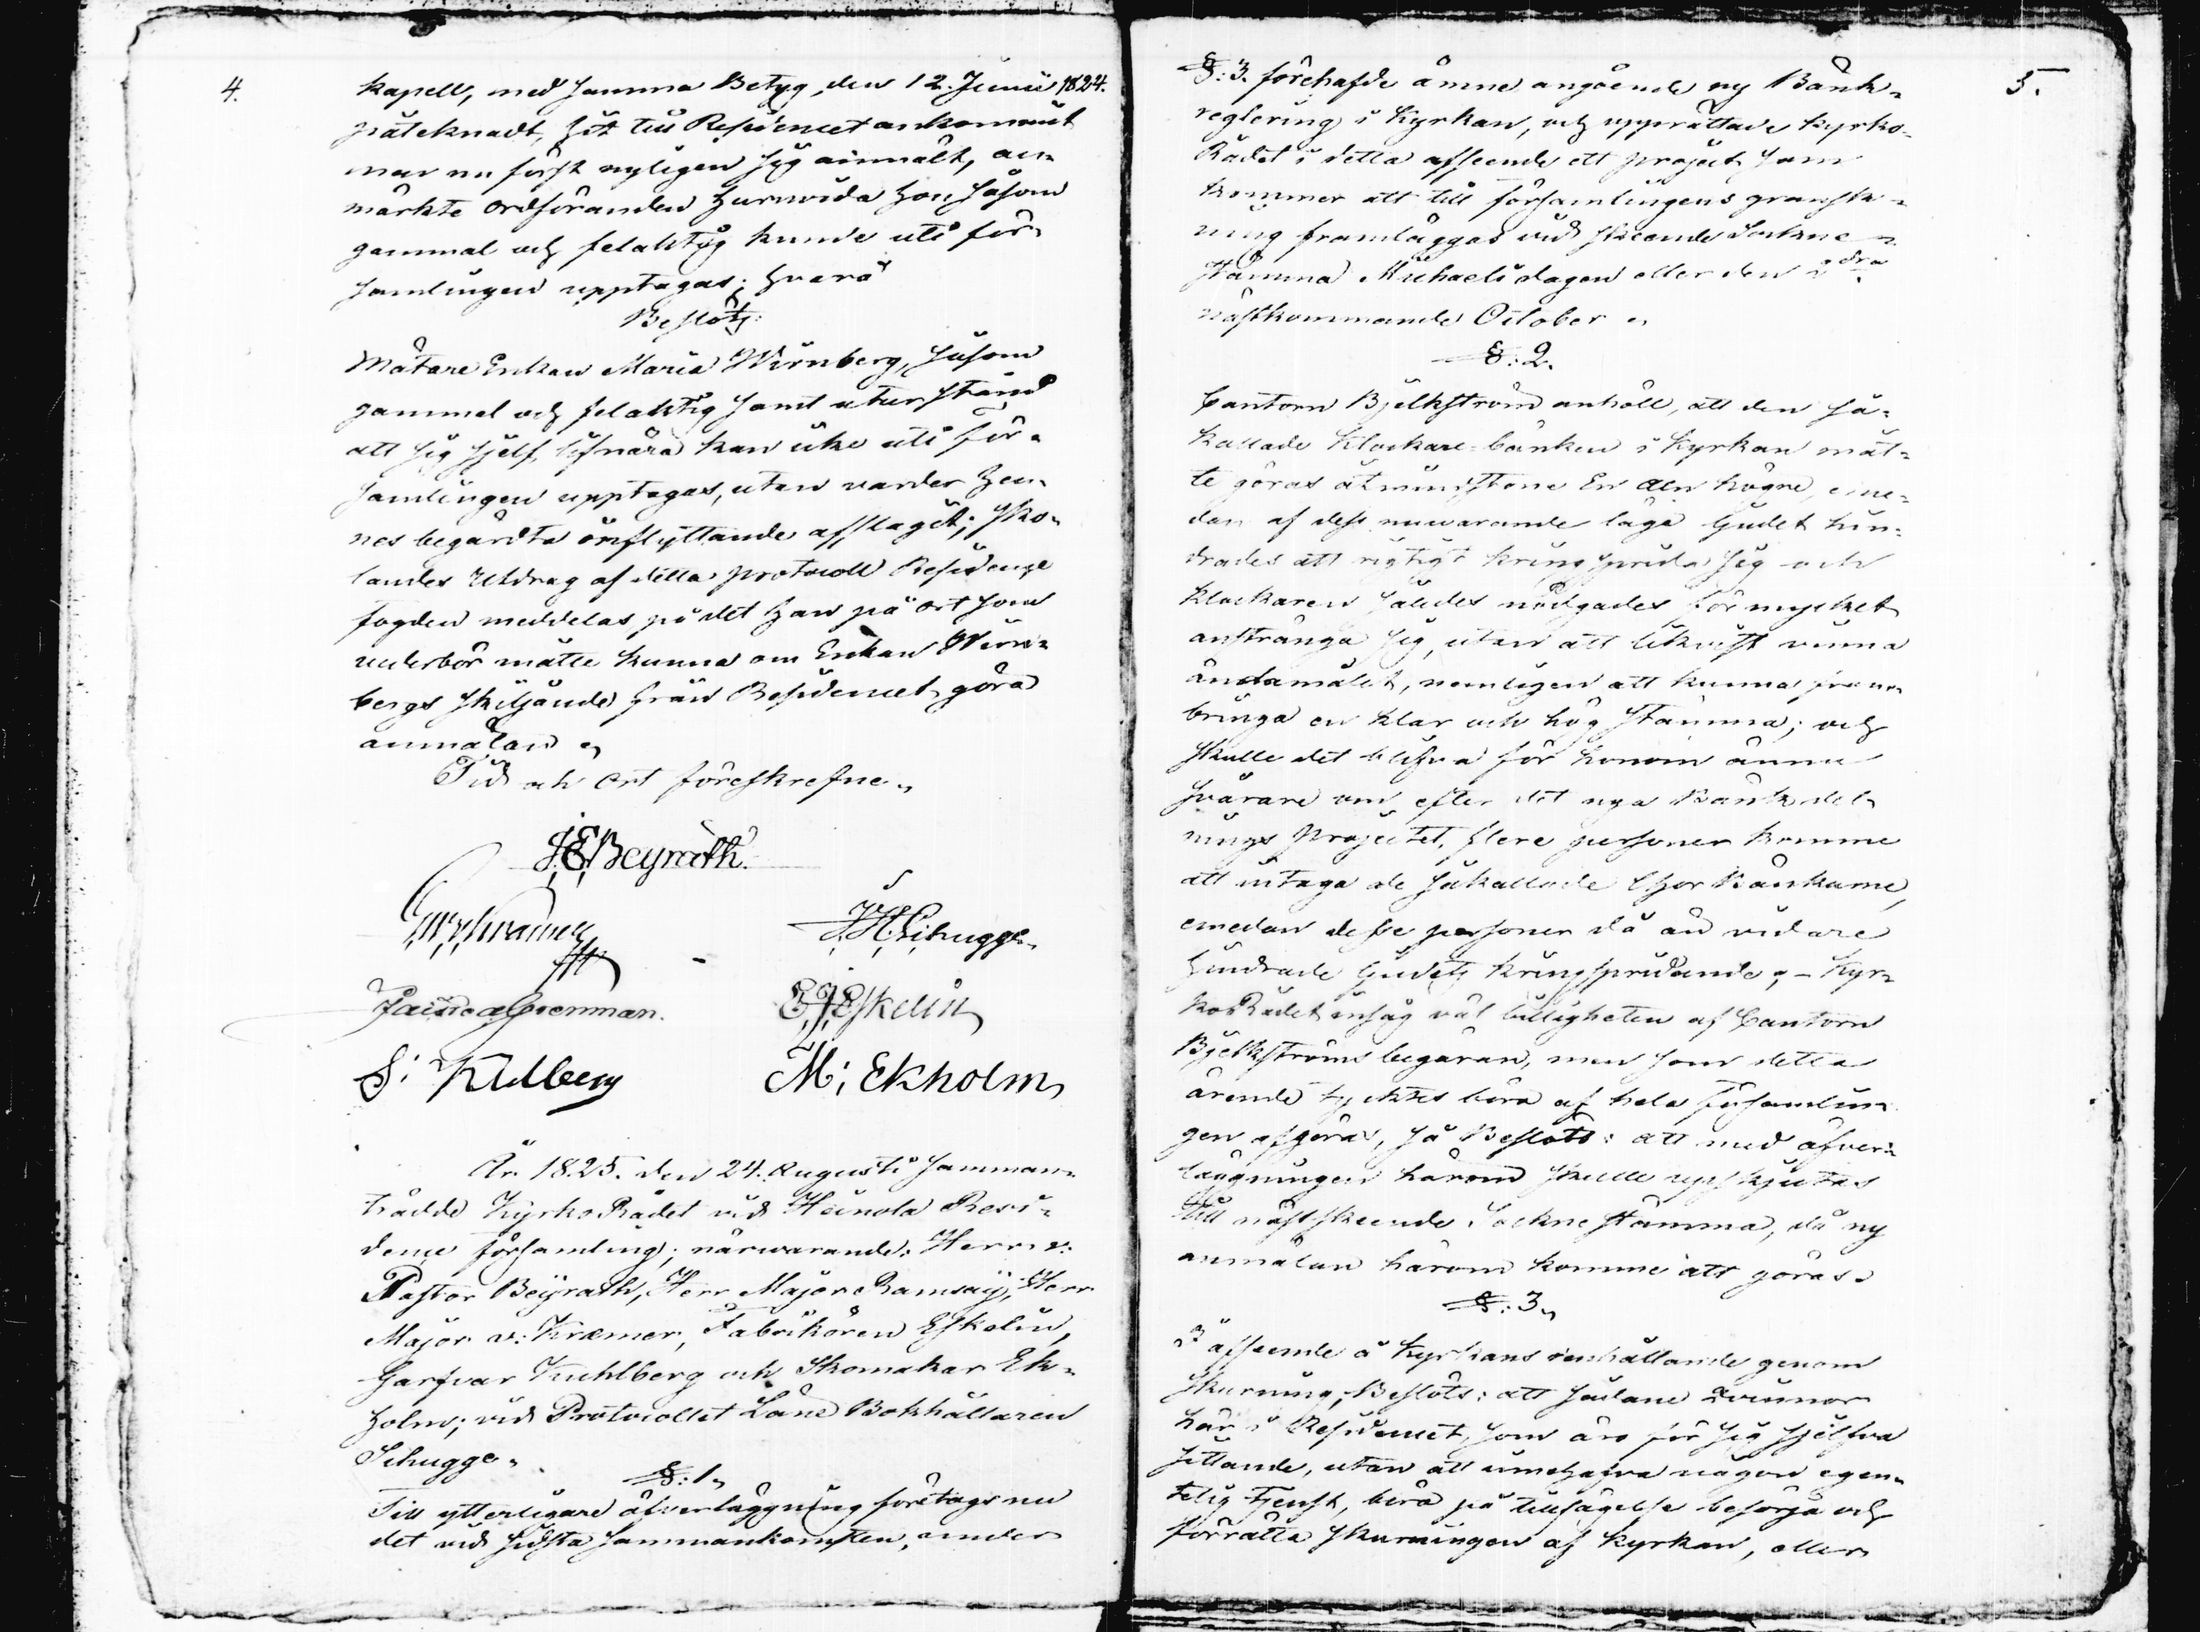 4.
kapell, med samma Betyg, den 12. Junii 1824.
påteknadt, hit till Residencet ankommit
men nu först nyligen sig anmält, an-
märkte Ordföranden huruvida hon såsom
gammal och felaktig kunde uti för-
samlingen upptagas; hvarå
Beslöts:
Mätare Enkan Maria Wirnberg, såsom
gammal och felaktig samt utur stånd
att sig sjelf lifnära kan icke uti för-
samlingen upptagas, utan varder hen-
nes begärdta inflyttande afslagit; sko-
landes Utdrag af detta protocoll Residence
fogden meddelas på det han på ort som
vederbör måtte kunna om Enkan Wirn-
bergs skiljande från Residencet göra
anmälan.
Tid och Ort föreskrefne.
J E Beyrath.
J. H. Schugge.
E J Eskelin
M: Ekholm
År 1825. den 24. Augusti samman-
trädde KyrkoRådet vid Heinola Resi-
dence församling; närwarande: Herr v.
Pastor Beyrath, Herr Major Ramsay, Herr
Major v: Kræmer, Fabrikören Eskelin,
Garfvar Kuhlberg och Skomakar Ek-
holm; vid Protocollet Läne Bokhållaren
Schugge.
§: 1.
Till ytterligare öfverläggning företogs nu
det vid sidsta sammankomsten, under
5.
§: 3. förehafde ämne angående ny Bänk-
reglering i Kyrkan, och upprättade Kyrko-
Rådet i detta afseende ett project som
kommer att till församlingens gransk-
ning framläggas vid skeende Sockne-
stämma Michaelidagen eller den 2dra
nästkommande October.
§: 2.
Cantorn Bjelkström anhöll, att den så-
kallade Klockare-bänken i Kyrkan måt-
te göras åtminstone En aln högre, eme-
dan af dess nuwarande läge ljudet hin-
drades att rigtigt kringsprida sig och
Klockaren således nödgades för mycket
anstränga sig, utan att likväl vinna
ändamålet, nemligen att kunna fram-
bringa en klar och hög stämma; och
skulle det blifva för honom ännu
svårare om, efter det nya Bänkdel-
nings Projectet, flere personer komme
att intaga de såkallade Chor Bänkarne,
emedan desse personer då än vidare
hindrade ljudets kringspridande; - Kyr-
koRådet insåg väl billigheten af Cantorn
Bjelkströms begäran, men som detta
ärende tycktes böra af hela församlin-
gen afgöras, så Beslöts: att med öfver-
läggningen härom skulle uppskjutas
till nästskeende Sockne stämma, då ny
anmälan härom komme att göras.
§: 3.
I afseende å Kyrkans renhållande genom
skurning, Beslöts: att sådane Qvinnor
här i Residencet, som äro för sig sjelfva
sittande, utan att innehafva någon egen-
telig tjenst, böra på tillsägelse besörja och
förrätta skurningen af Kyrkan, eller